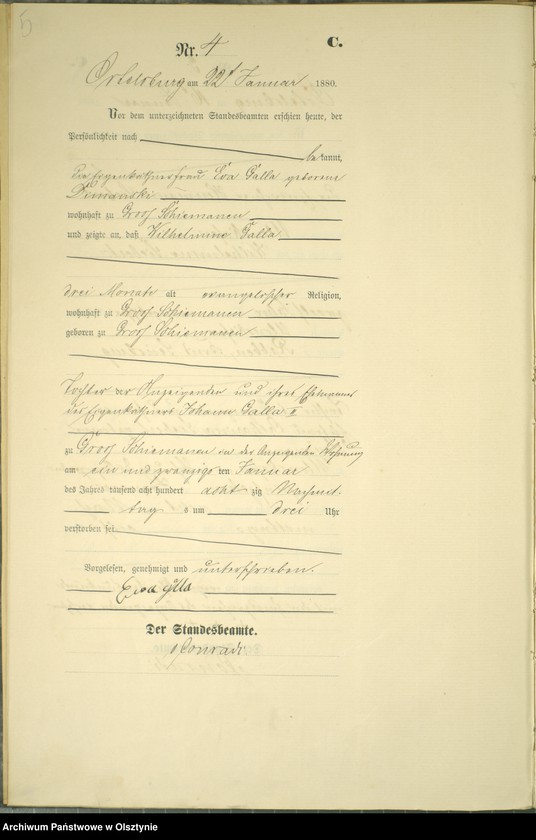 5
Nr. 4
C.
Ortelsburg am 22t Januar 1880.
Vor dem unterzeichneten Standesbeamten erschien heute, der
Persönlichkeit nach
be kannt,
die Eigenkäthnerfrau Eva Galla geborene
Dimanski
wohnhaft zu Groß Schiemanen
und zeigte an, daß Wilhelmine Galla
drei Monate alt evangelischer Religion,
wohnhaft zu Groß Schiemanen
geboren zu Groß Schiemanen
Tochter der Anzeigenden und ihres Ehemannes
des Eigenkäthners Johann Galla II
zu Groß Schiemanen in der Anzeigenden Wohnung
am ein und zwanzigs ten Januar
des Jahres tausend acht hundert acht zig Nachmit-
tag s um drei Uhr
verstorben sei.
Vorgelesen, genehmigt und unterschrieben.
Ewa Galla
Der Standesbeamte.
Conradi
Archiwum Państwowe w Olsztynie